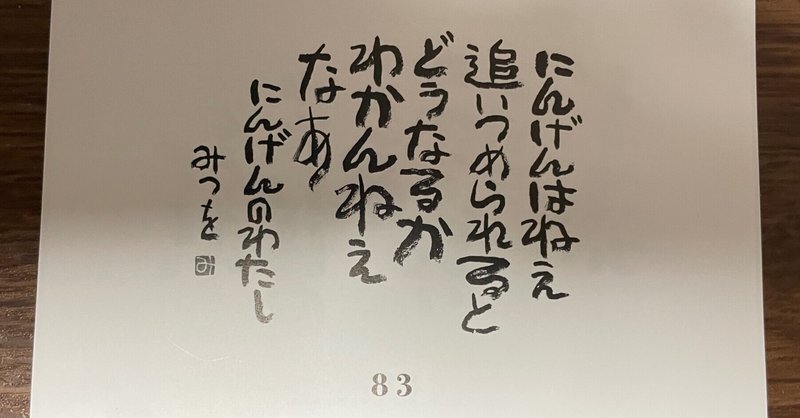 にんげんはねえ
追いつめられると
どうなるか
わかんねえ
なあ
にんげんのわたし
みつを
83